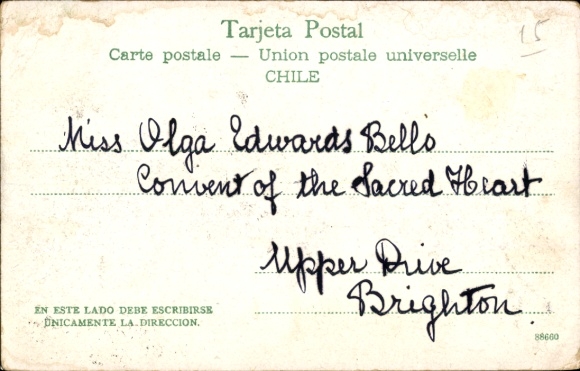 Tarjeta Postal
15
Carte postale — Union postale universelle
CHILE
Miss Olga Edwards Bello
Convent of the Sacred Heart
Upper Drive
Brighton.
EN ESTE LADO DEBE ESCRIBIRSE
ÚNICAMENTE LA DIRECCION.
88660